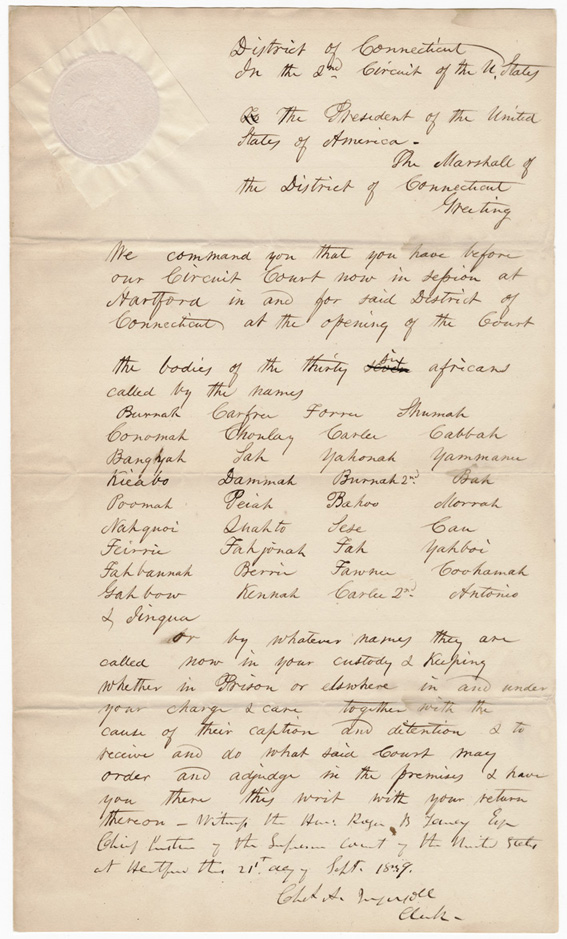 District of Connecticut
In the 2nd Circuit of the U. States
the President of the United
States of America -
The Marshall of
the District of Connecticut
Greeting
We command you that you have before
our Circuit Court now in session at
Hartford in and for said District of
Connecticut at the opening of the Court
the bodies of the thirty six africans
called by the names
Burnah Carfree Forrie Shumah
Conomah Choolay Carlee Gabbah
Banghyah Sah Yahonah Yammanie
Kieabo Dammah Burnah 2d Bah
Poomah Peiah Bahoo Morrah
Nahquoi Quahto Sese Cau
Feirrie Fahjonah Fah Yahboi
Fahbannah Berrie Fawnee Coohamah
Gahbow Kennah Carlee 2d Antonio
& Jingua
or by whatever names they are
called now in your custody & Keeping
whether in Prison or elswhere in and under
your charge & care together with the
cause of their caption and detention & to
receive and do what said Court may
order and adjudge in the premises & have
you there this writ with your return
thereon - Witness the Hon: Roger B Taney Esqr
Chief Justice of the Supreme Court of the United States
at Hartford this 21st day of Sept. 1839.
Chas A. Ingersoll
Clerk -